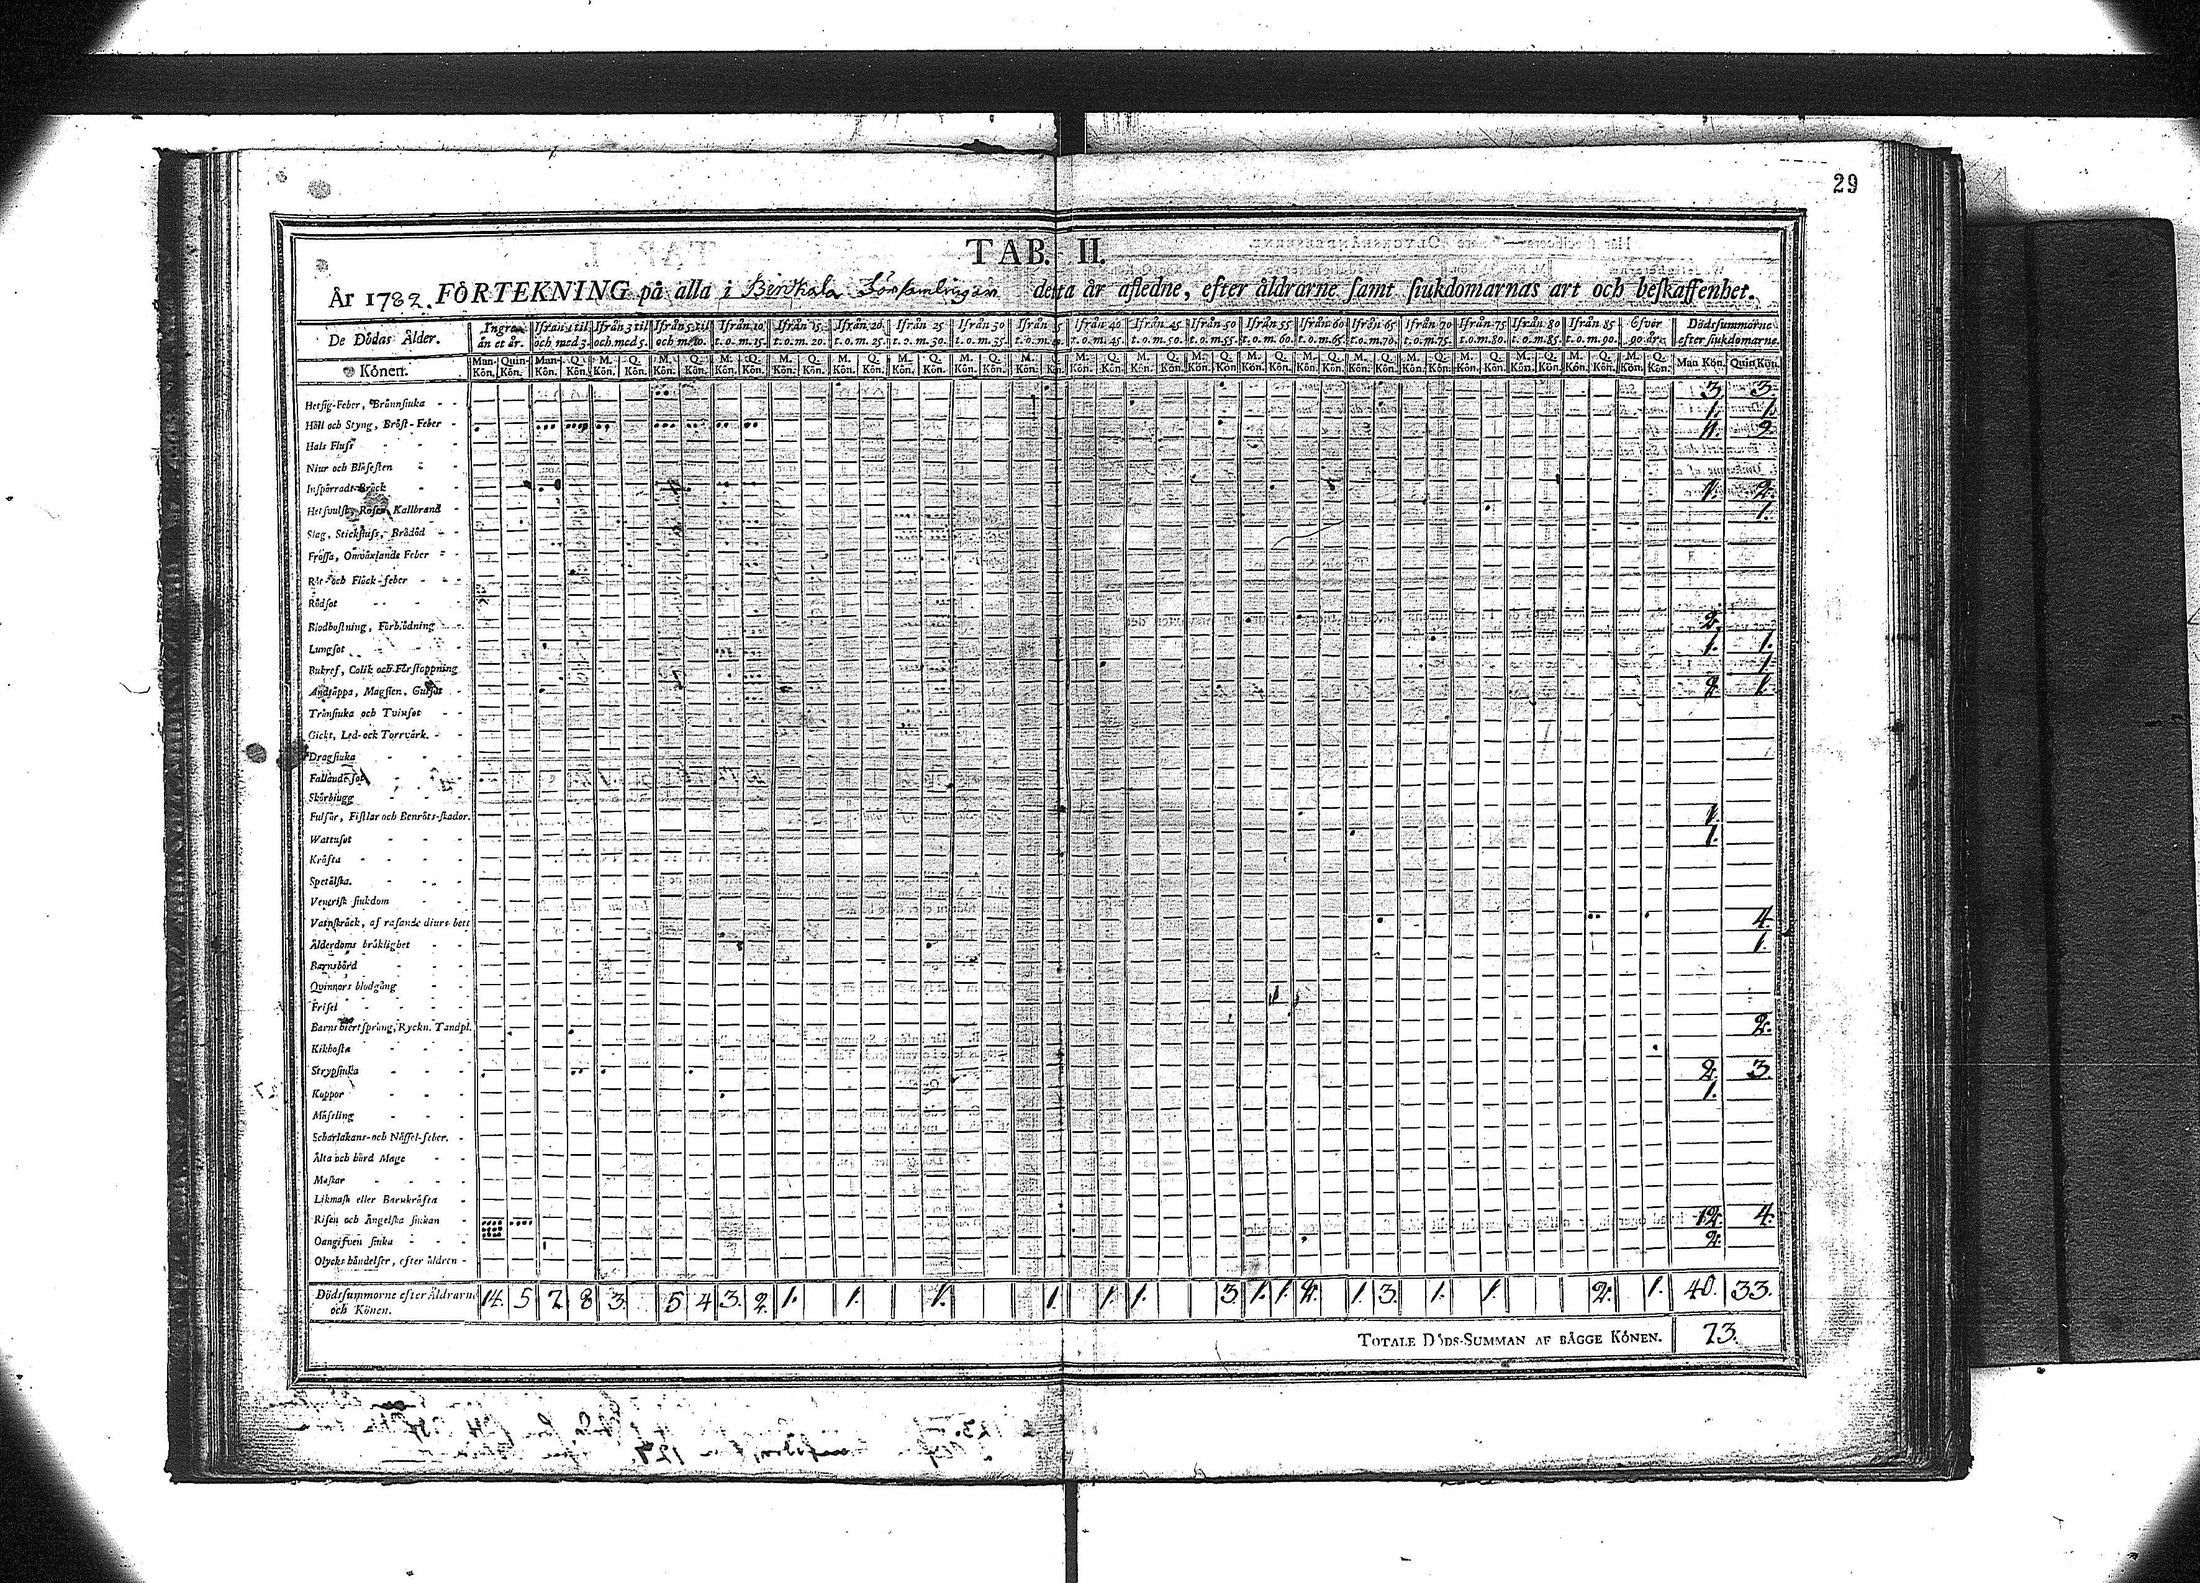 29
TAB. II.
År 1782. FÖRTEKNING på alla i Församlingen detta år afledne, efter åldrarne samt siukdomarnas art och beskaffenhet.
De Dödas Ålder. Ingre än et år. Ifrån 1 til och med 3. Ifrån 3 til och med 5. Ifrån 5 til och m. 10. Ifrån 10 t. o. m. 15. Ifrån 15 t. o. m. 20. Ifrån 20 t. o. m. 25. Ifrån 25 t. o. m. 30. Ifrån 30 t. o. m. 35. Ifrån 40 t. o. m. 45. Ifrån 45 t. o. m. 50. Ifrån 50 t. o. m. 55. Ifrån 55 t. o. m. 60. Ifrån 60 t. o. m. 65. Ifrån 65 t. o. m. 70. Ifrån 70 t. o. m. 75. Ifrån 75 t. o. m. 80. Ifrån 80 t. o. m. 85. Ifrån 85 t. o. m. 90. Öfver 90 år. Dödssummorne efter siukdomarne.
Könen. Man-Kön. Quin-Kön. Man-Kön. Q. Kön. M. Kön. Q. Kön. M. Kön. Q. Kön. M. Kön. Q. Kön. M. Kön. Q. Kön. M. Kön. Q. Kön. M. Kön. Q. Kön. M. Kön. Q. Kön. M. Kön. Q. Kön. M. Kön. Q. Kön. M. Kön. Q. Kön. M. Kön. Q. Kön. M. Kön. Q. Kön. M. Kön. Q. Kön. M. Kön. Q. Kön. M. Kön. Q. Kön. M. Kön. Q. Kön. M. Kön. Q. Kön. M. Kön. Q. Kön. M. Kön. Q. Kön. Man Kön. Quin Kön.
3. 3.
Hetsig-Feber, Brännsiuka - - 1. 1.
Håll och Styng, Bröst-Feber - 11. 9.
Hals Fluss - -
Niur och Blåsesten - -
Inspärradt Bråck - - 1. 2.
Hetsvulst, Rosen, Kallbrand - 1.
Slag, Stickfluss, Brådöd - -
Frossa, Omväxlande Feber - -
Röt- och Fläck-feber - - -
Rödsot - - -
Blodhostning, Förblödning - - 2.
Lungsot - - 1. 1.
Bukref, Colik och Förstoppning 1.
Andtäppa, Magsien, Gulsot - 2. 1.
Trånsiuka och Tvinsot - -
Gickt, Led- och Torrvärk. - -
Dragsiuka - - -
Fallande sot - -
Skörbiugg - - -
Fulsår, Fistlar och Benröts-skador. 1.
Wattusot - - - 1.
Kräfta - - - -
Spetälska. - - -
Venerisk siukdom - - -
Vatnskräck, af rasande diurs bett 4.
Ålderdoms bräklighet - - 1.
Barnsbörd - - -
Qvinnors blodgång - -
Frisel - - - -
Barns hiertsprång, Ryckn. Tandpl. 2.
Kikhosta - - -
Strypsiuka - - - 2. 3.
Koppor - - - 1.
Mässling - - -
Scharlakans- och Nässel-feber. -
Älta och hård Mage - -
Maskar - - - -
Likmask eller Barnkräfta -
Risen och Ängelska siukan - 12. 4.
Oangifven siuka - - - 2.
Olycks händelser, efter åldren -
Dödssummorne efter Åldrarne och Könen. 14. 5 7. 8 3. 5 4 3. 2. 1. 1. 1. 1. 1. 1. 3 1. 1. 2. 1. 3. 1. 1. 2. 1. 40. 33.
TOTALE DÖDS-SUMMAN AF BÅGGE KÖNEN. 73.